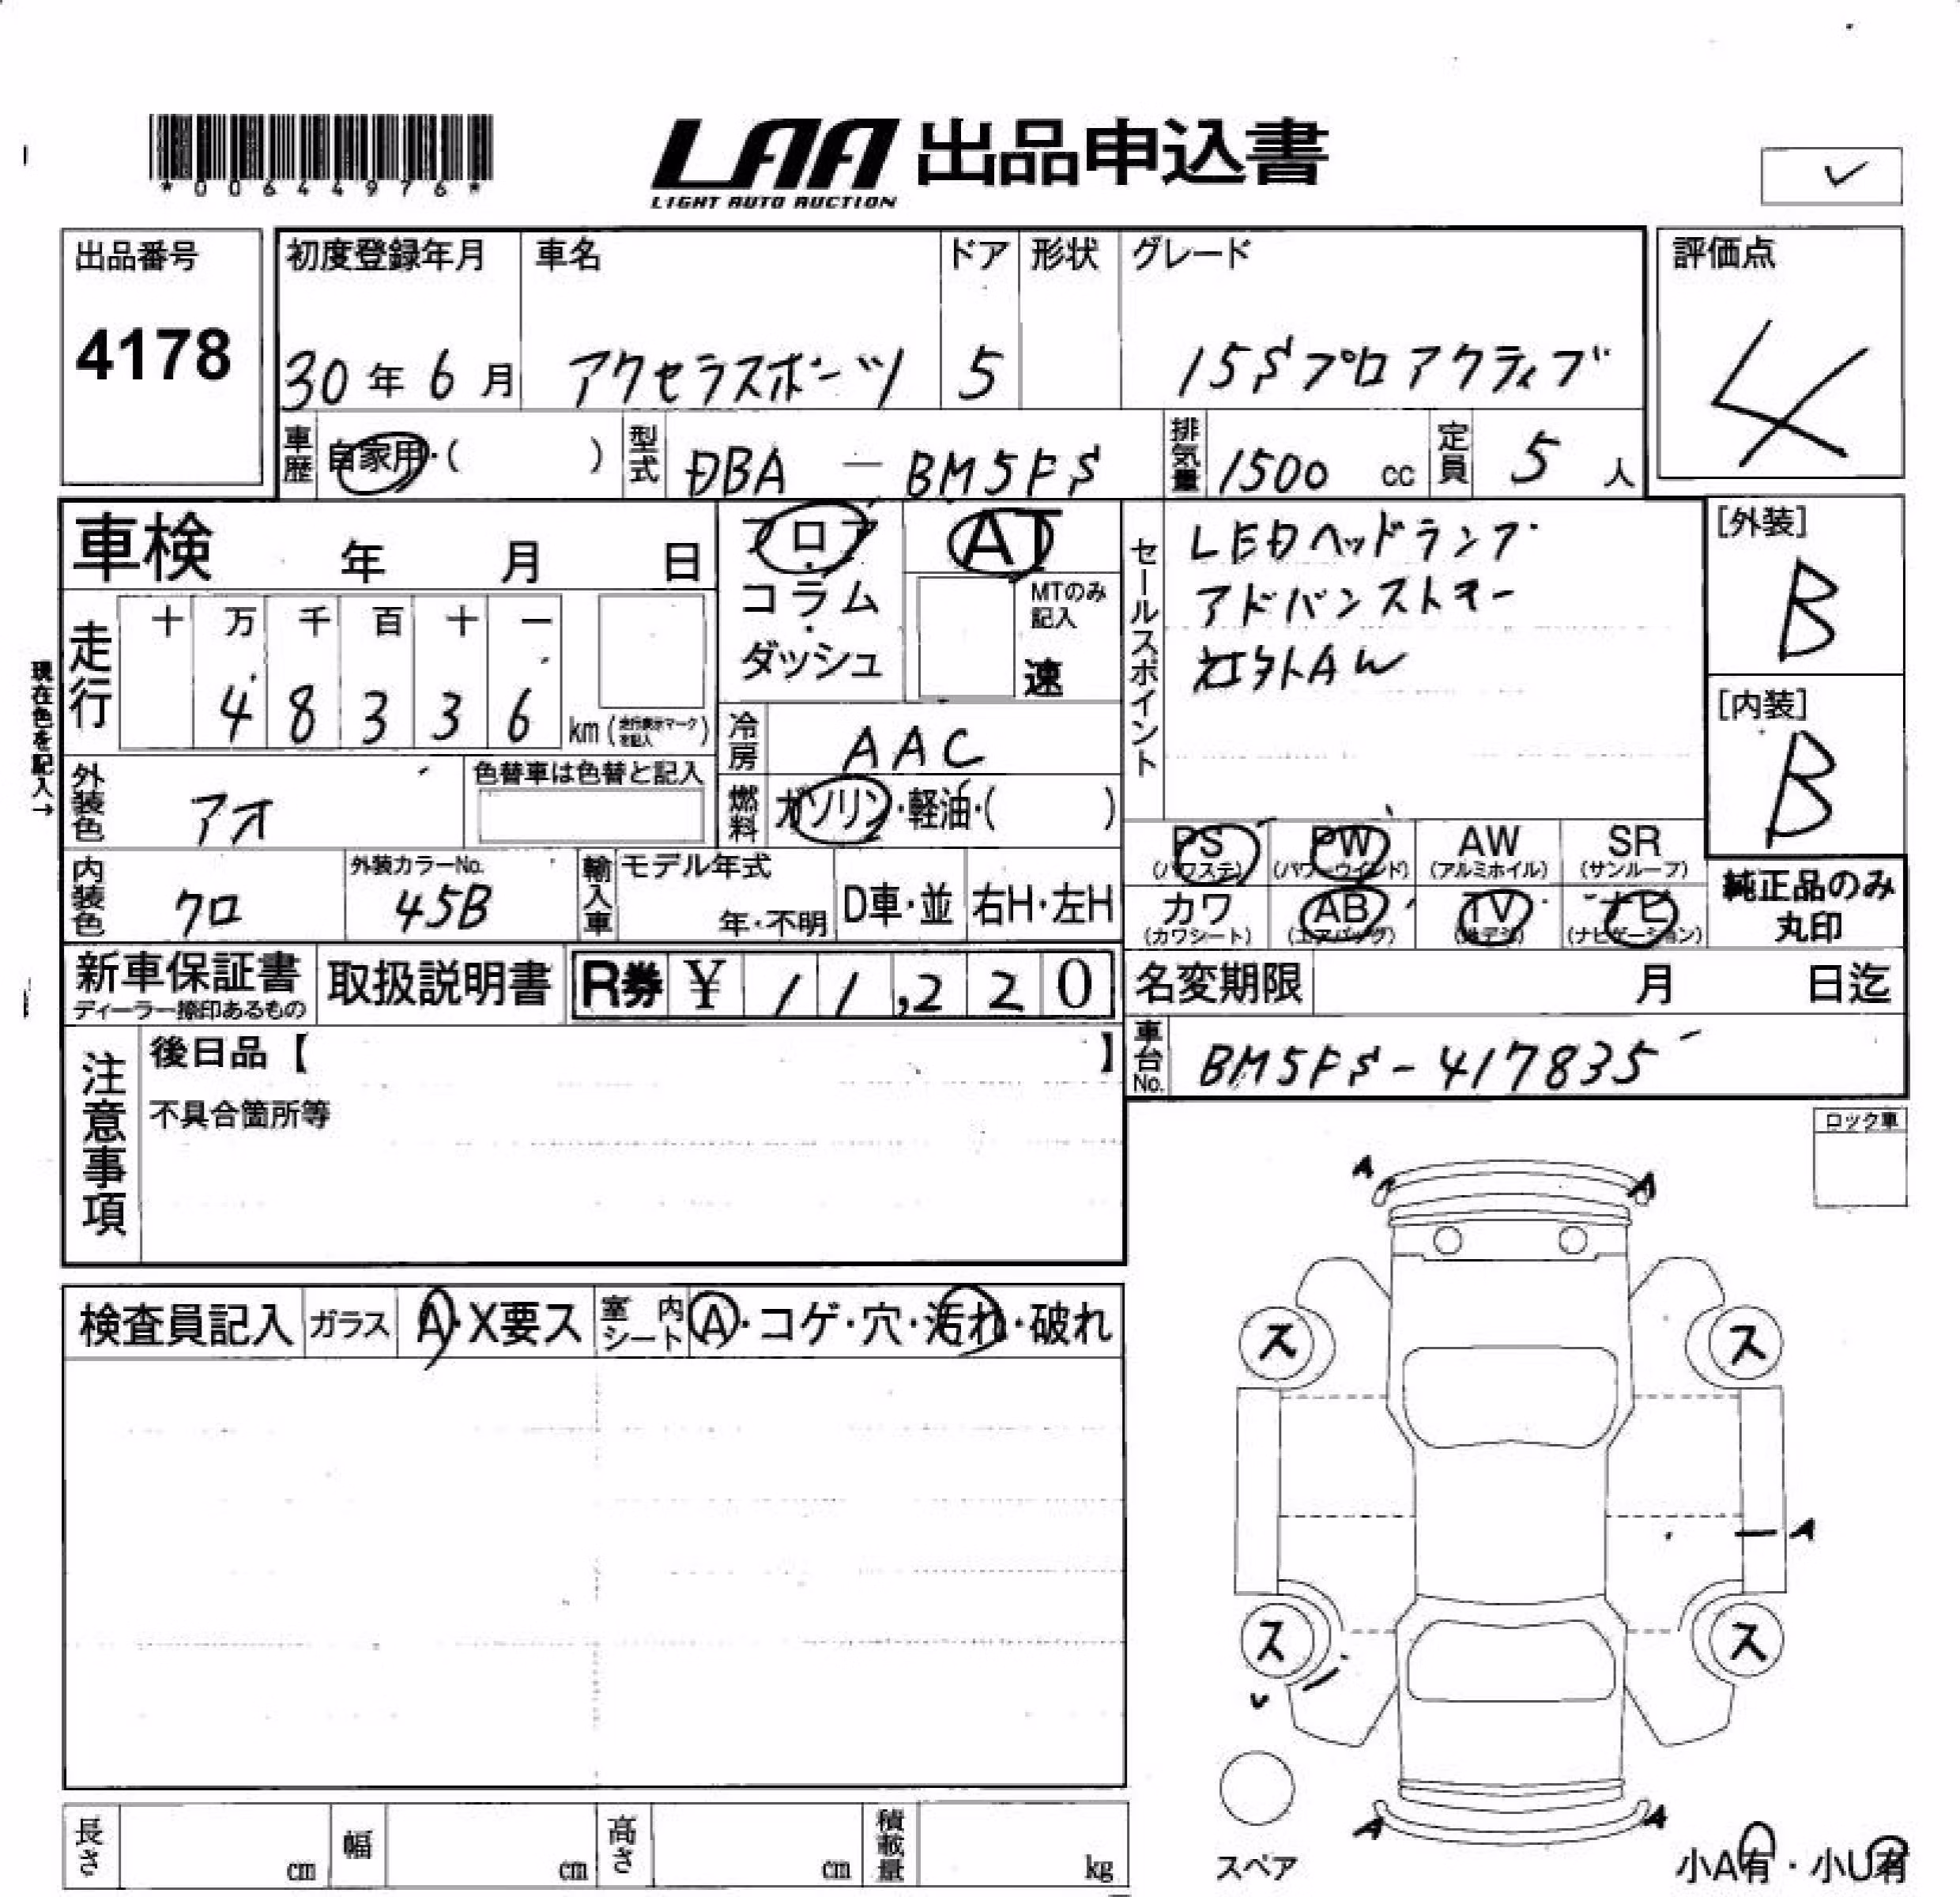 *00644976*
LAA 出品申込書
LIGHT AUTO AUCTION
出品番号
4178
初度登録年月 車名 ドア 形状 グレード
30年6月 アクセラスポーツ 5 15Sプロアクティブ
評価点
4
車歴 自家用・( ) 型式 DBA - BM5FS 排気量 1500 cc 定員 5 人
車検 年 月 日
フロア AT
コラム
ダッシュ
MTのみ記入
速
走行 十 万 千 百 十 一
4 8 3 3 6 km (走行表示マークを記入)
現在色を記入→
冷房 AAC
外装色 アオ
色替車は色替と記入
燃料 ガソリン・軽油・( )
セールスポイント
LEDヘッドランプ
アドバンストキー
社外AW
[外装]
B
[内装]
B
内装色 クロ
外装カラーNo.
45B
輸入車 モデル年式
年・不明
D車・並 右H・左H
PS PW AW SR
(パワステ) (パワーウインド) (アルミホイル) (サンルーフ)
カワ AB TV ナビ
(カワシート) (エアバッグ) (地デジ) (ナビゲーション)
純正品のみ
丸印
新車保証書
ディーラー捺印あるもの
取扱説明書 R券 ¥ 11,220
名変期限 月 日迄
車台No. BM5FS-417835
注意事項
後日品【 】
不具合箇所等
ロック車
検査員記入 ガラス A・X要ス 室内シート A・コゲ・穴・汚れ・破れ
A A
ス ス
A
ス ス
A A
スペア
小A有・小U有
長さ cm 幅 cm 高さ cm 積載量 kg